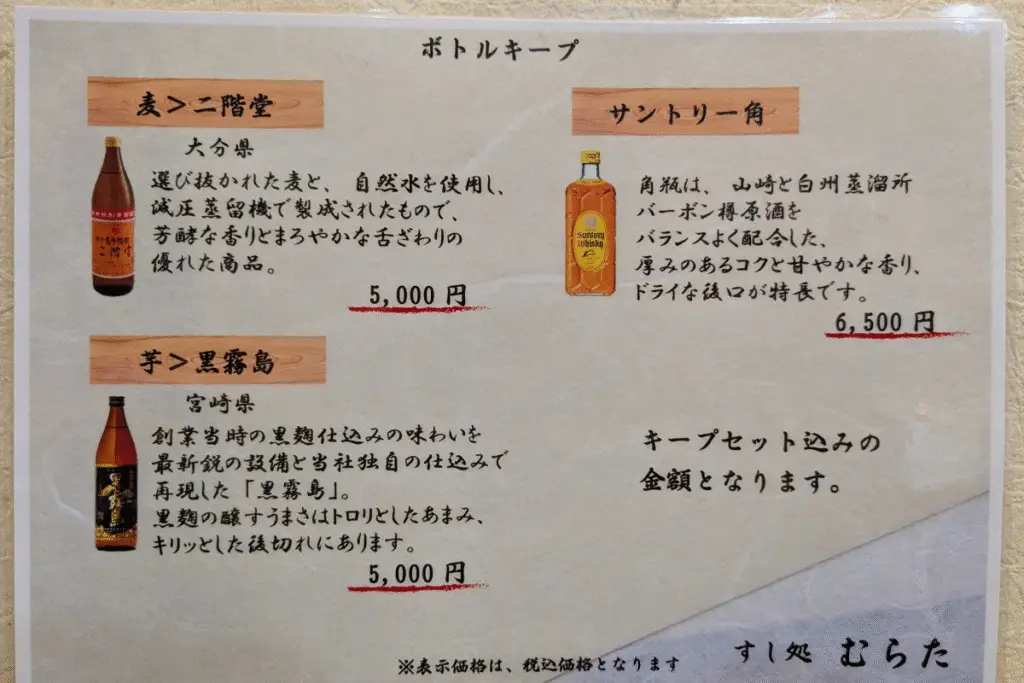 ボトルキープ
麦>二階堂
大分県
選び抜かれた麦と、自然水を使用し、
減圧蒸留機で製成されたもので、
芳醇な香りとまろやかな舌ざわりの
優れた商品。
5,000 円
芋>黒霧島
宮崎県
創業当時の黒麹仕込みの味わいを
最新鋭の設備と当社独自の仕込みで
再現した「黒霧島」。
黒麹の醸すうまさはトロリとしたあまみ、
キリッとした後切れにあります。
5,000 円
サントリー角
角瓶は、山崎と白州蒸溜所
バーボン樽原酒を
バランスよく配合した、
厚みのあるコクと甘やかな香り、
ドライな後口が特長です。
6,500 円
キープセット込みの
金額となります。
※表示価格は、税込価格となります
すし処 むらた
二階堂
Suntory
Whisky
黒霧島